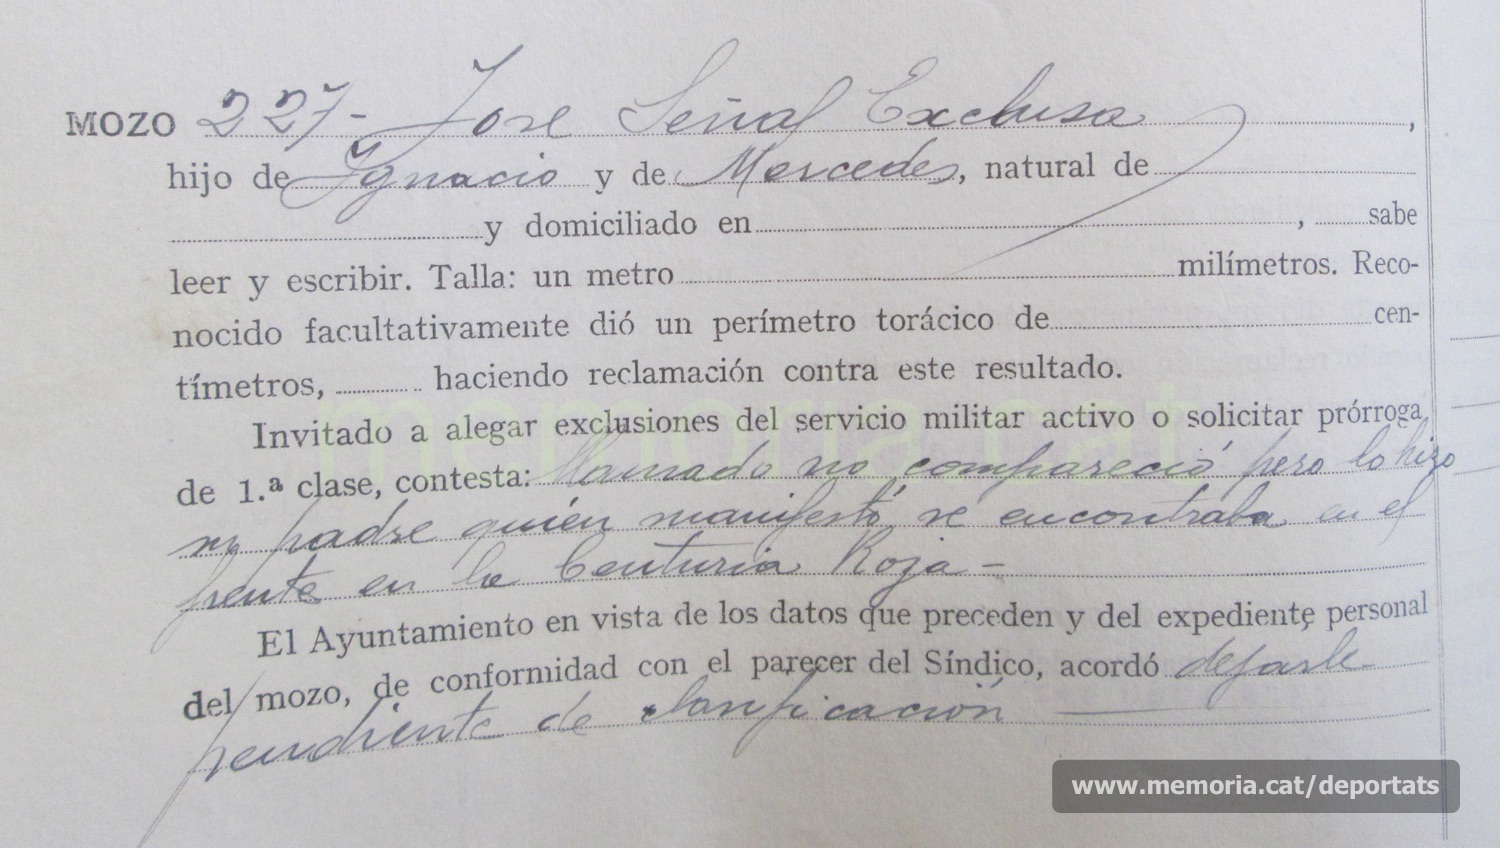 MOZO 227- Jose Señal Exclusa,
hijo de Ygnacio y de Mercedes, natural de
y domiciliado en , sabe
leer y escribir. Talla: un metro milímetros. Reco-
nocido facultativamente dió un perímetro torácico de cen-
tímetros, haciendo reclamación contra este resultado.
Invitado a alegar exclusiones del servicio militar activo o solicitar prórroga
de 1.ª clase, contesta: llamado no compareció pero lo hizo
su padre quién manifestó, se encontraba en el
frente en la Centuria Roja -
El Ayuntamiento en vista de los datos que preceden y del expediente personal
del mozo, de conformidad con el parecer del Síndico, acordó dejarle
pendiente de clasificación
memoria.cat
www.memoria.cat/deportats